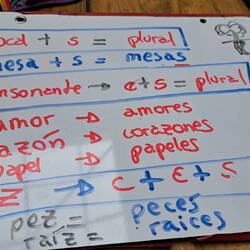 ocal + s = plural
mesa + s = mesas
onsonante → e+s = plural
amor → amores
razón → corazones
papel → papeles
Z → C + E + S
pez = peces
raíz = raíces